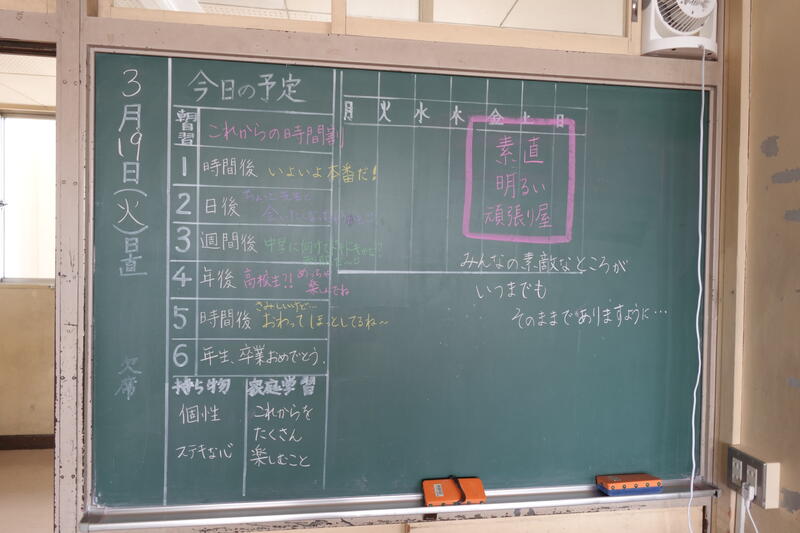 3月19日(火)日直
欠席
今日の予定
朝学習 これからの時間割
1 時間後 いよいよ本番だ!
2 日後 ちょっと先生に
会いたくなっちゃう
3 週間後 中学に向けてドキドキかな?
4 年後 高校生?! めっちゃ
楽しんでね
5 時間後 さみしいけど…
おわってほっとしてるね〜
6 年生、卒業おめでとう。
持ち物
個性
ステキな心
家庭学習
これからを
たくさん
楽しむこと
月 火 水 木 金 土 日
素直
明るい
頑張り屋
みんなの素敵なところが
いつまでも
そのままでありますように…